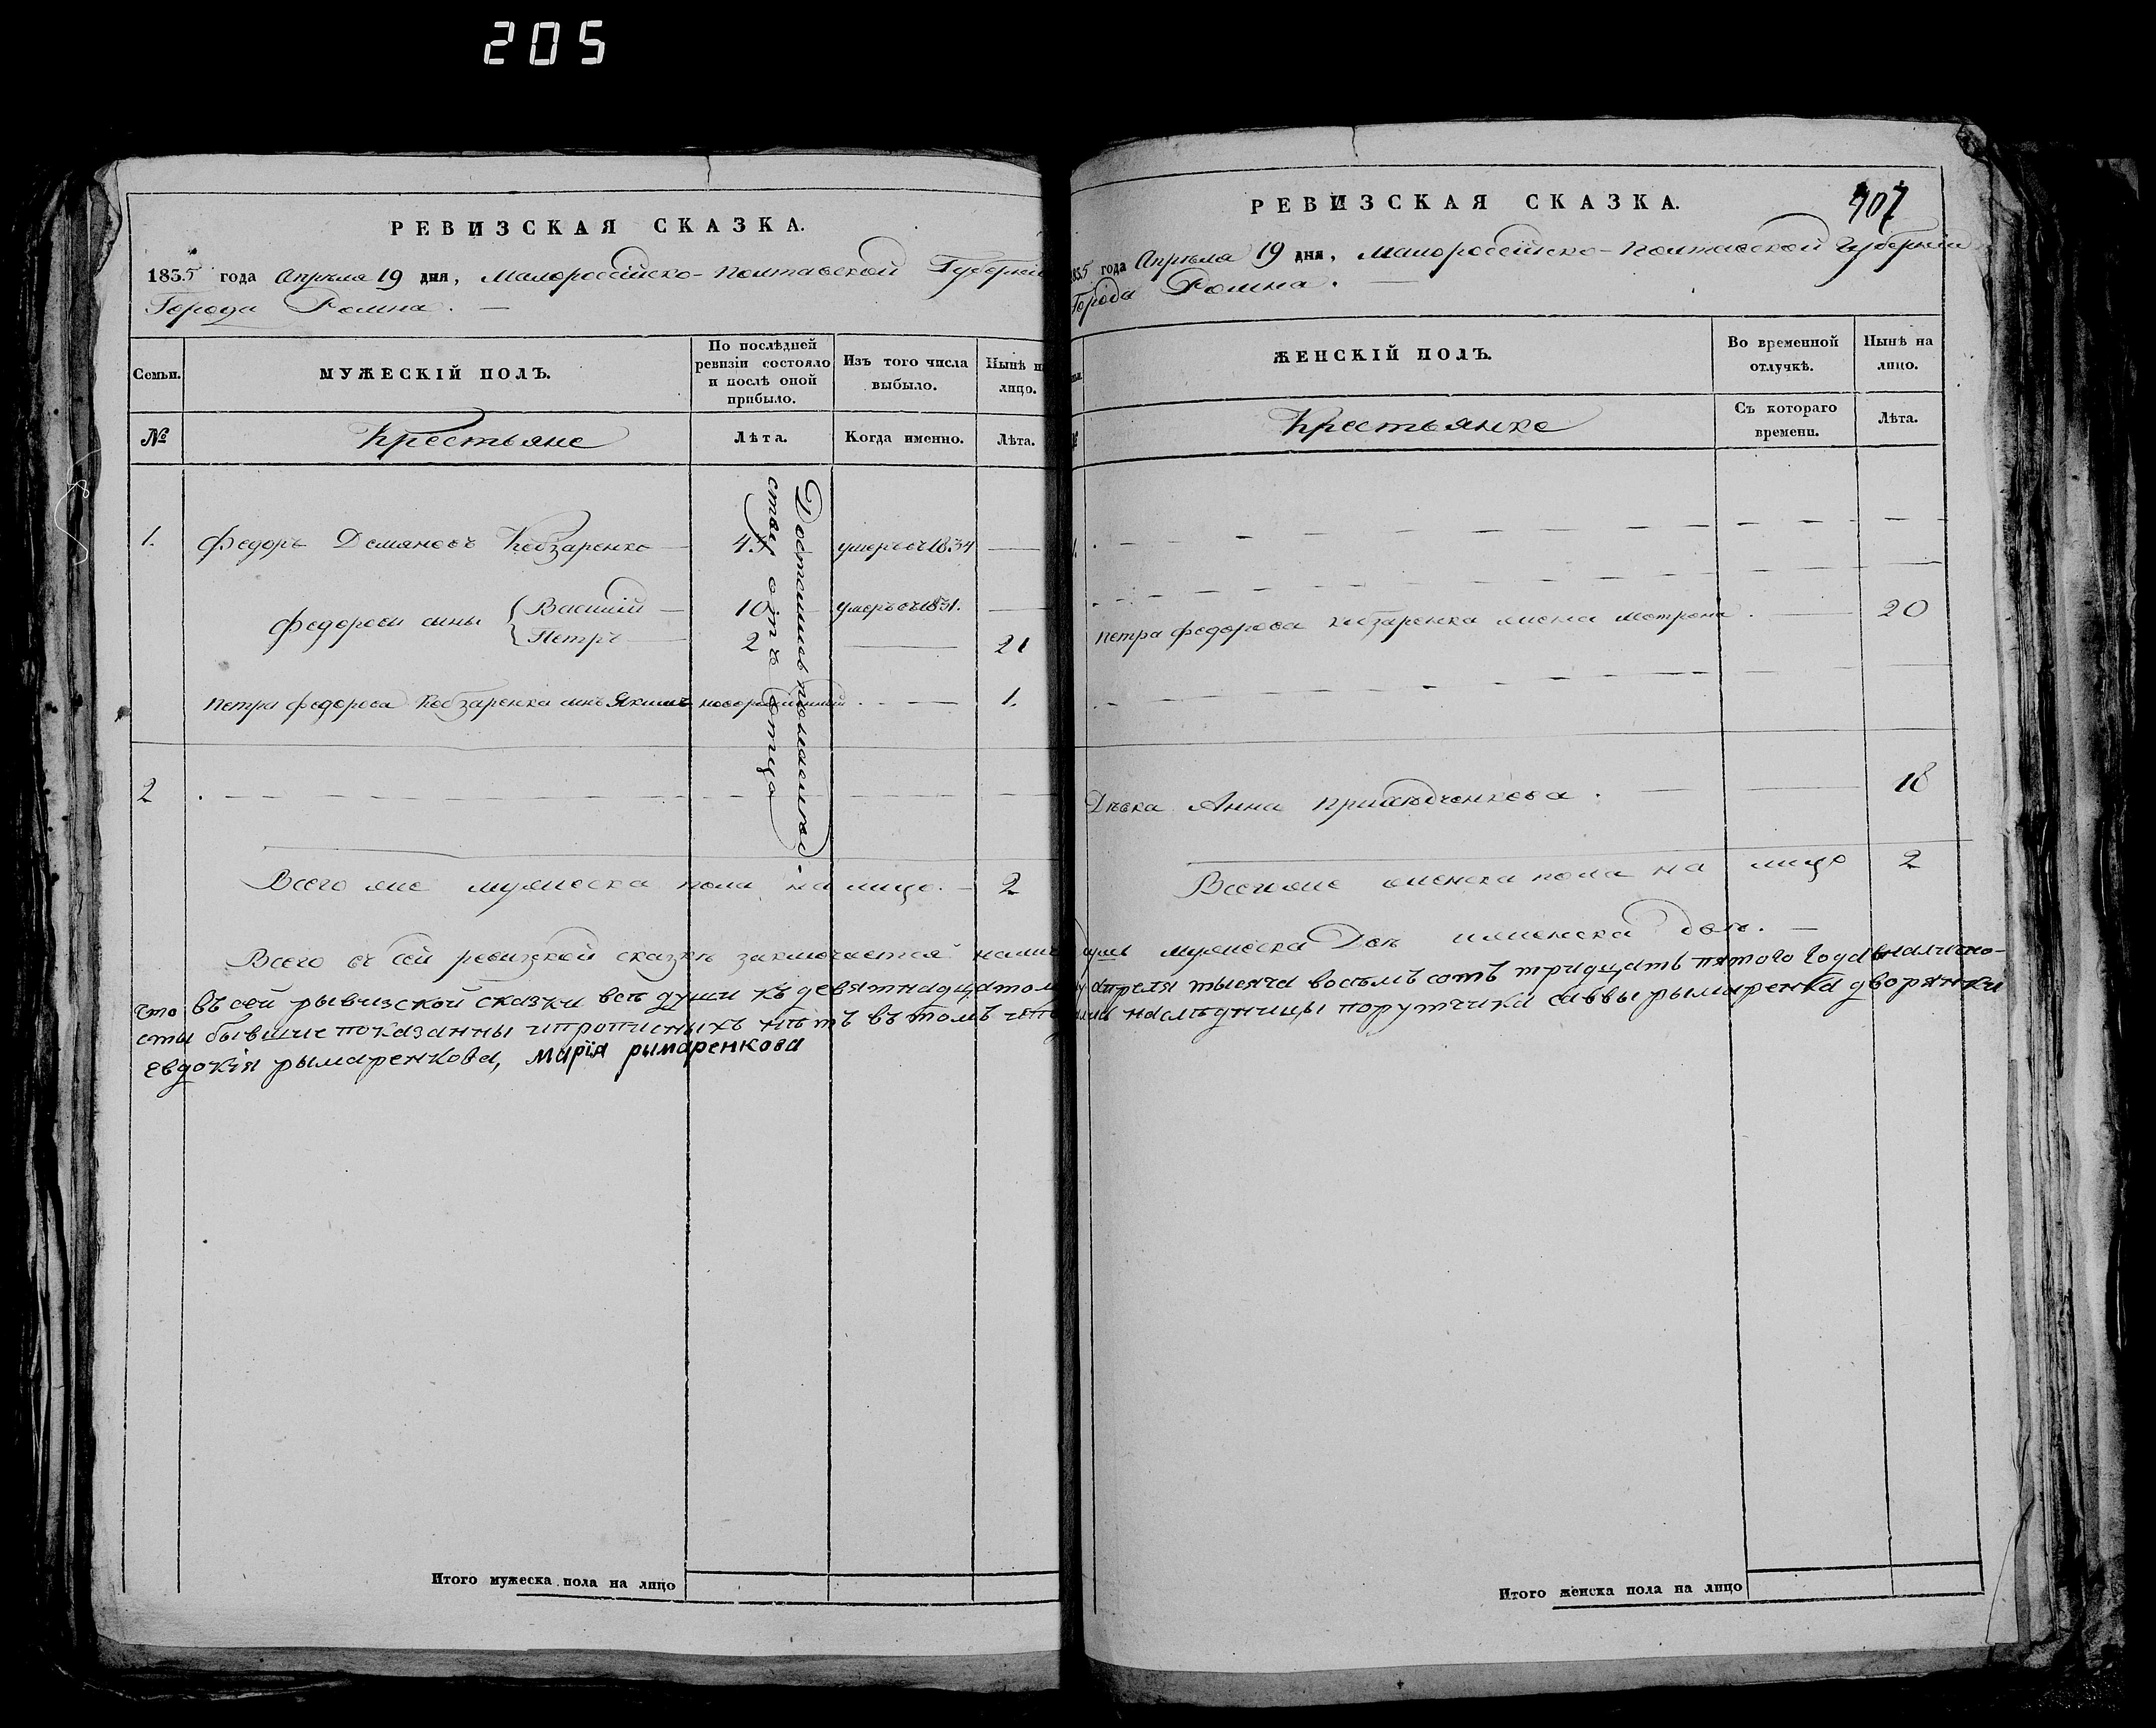 205
РЕВИЗСКАЯ СКАЗКА.
1835 года Апрѣля 19 дня, Малороссійско-Полтавской Губерніи
Города Ромна.
Семьи.
МУЖЕСКІЙ ПОЛЪ.
По послѣдней ревизіи состояло и послѣ оной прибыло.
Изъ того числа выбыло.
Нынѣ на лицо.
№
Крестьяне
Лѣта.
Когда именно.
Лѣта.
Достались по наслѣд-
ству отъ отца
1. Федоръ Демяновъ Кобзаренко 45 умеръ въ 1834
Федоровы сыны Василій 10 умеръ въ 1831.
Петръ 2 21
Петра Федорова Кобзаренка сынъ Якимъ новорожденный 1.
2
Всего же мужеска пола на лицо. 2
Всего въ сей ревизской сказкѣ заключается налич
что въ сей рывизской сказки всѣ души къ девятнадцатому
сти бывшие показанны и прописныхъ нѣтъ въ томъ
Евдокія рымаренкова, Марія рымаренкова
Итого мужеска пола на лицо
РЕВИЗСКАЯ СКАЗКА.
407
1835 года Апрѣля 19 дня, Малороссійско-Полтавской Губерніи
Города Ромна.
ЖЕНСКІЙ ПОЛЪ.
Во временной отлучкѣ.
Нынѣ на лицо.
Крестьянке
Съ котораго времени.
Лѣта.
1.
Петра Федорова Кобзаренка жена Мотрона 20
Дѣвка Анна 18
Всего же женска пола на лицо 2
душъ мужеска двѣ и женска двѣ.
апреля тысяча восемъ сотъ тридцать пятого года вналично-
наслѣдницы порутчика саввы рымаренка дворянки
Итого женска пола на лицо